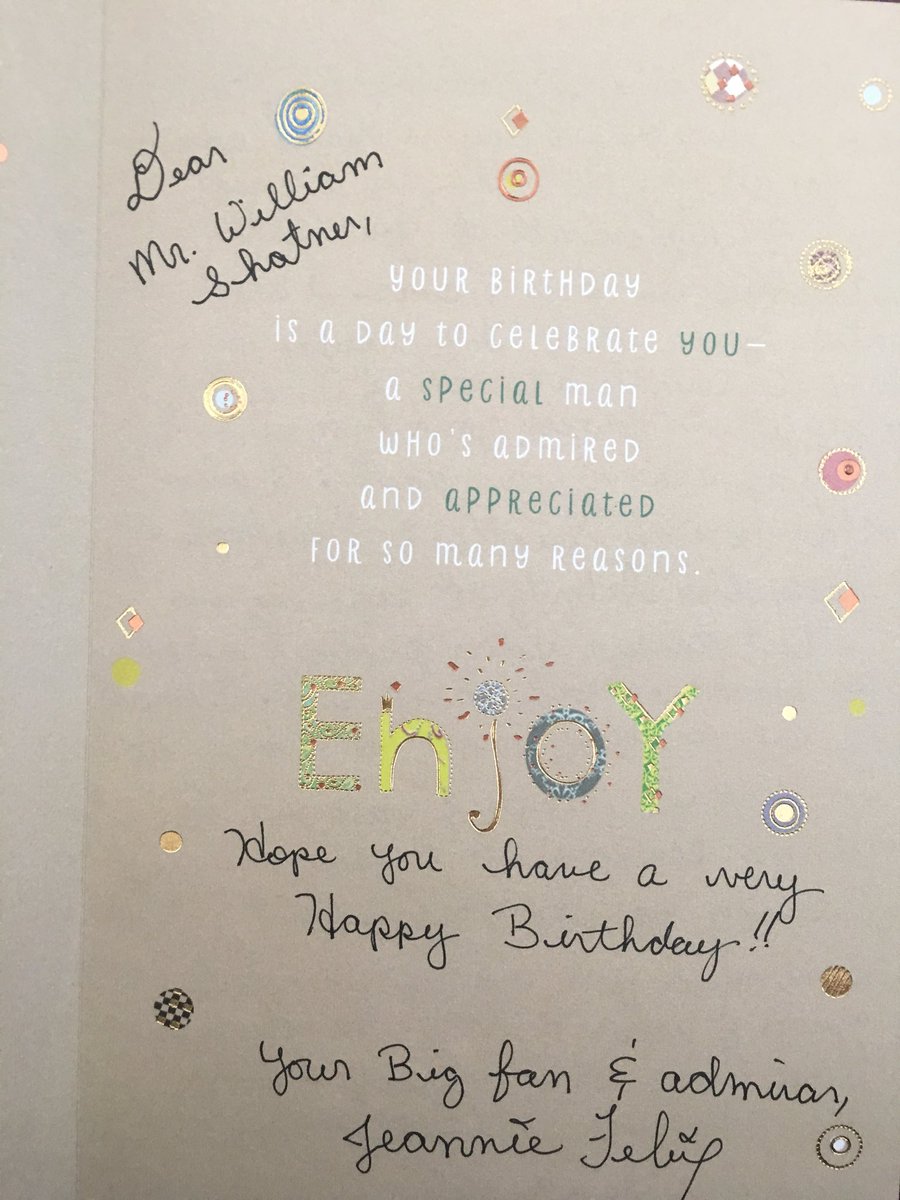 Dear
Mr. William
Shatner,
YOUR BIRTHDAY
IS A DAY TO CELEBRATE YOU—
A SPECIAL MAN
WHO'S ADMIRED
AND APPRECIATED
FOR SO MANY REASONS.
EnjoY
Hope you have a very
Happy Birthday!!
Your Big fan & admirar,
Jeannie Felix